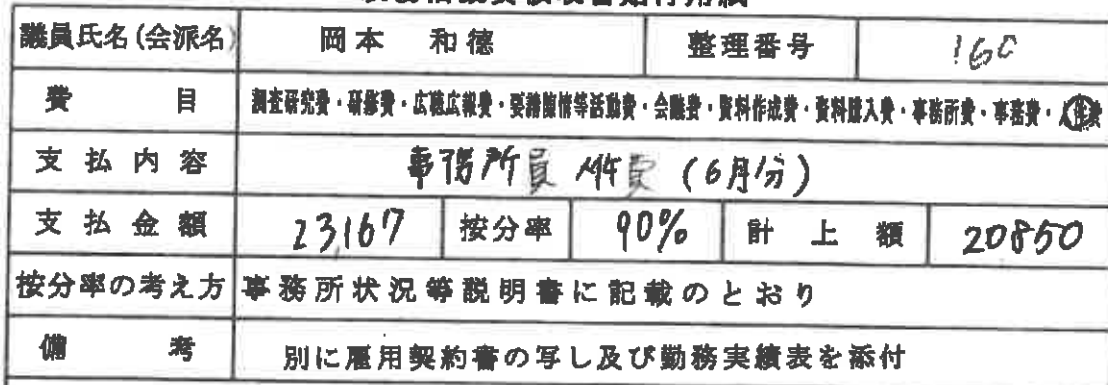 議員氏名(会派名) 岡本 和徳 整理番号 160
費目 調査研究費・研修費・広聴広報費・要請陳情等活動費・会議費・資料作成費・資料購入費・事務所費・事務費・人件費
支払内容 事務所員人件費(6月分)
支払金額 23,167 按分率 90% 計上額 20850
按分率の考え方 事務所状況等説明書に記載のとおり
備考 別に雇用契約書の写し及び勤務実績表を添付